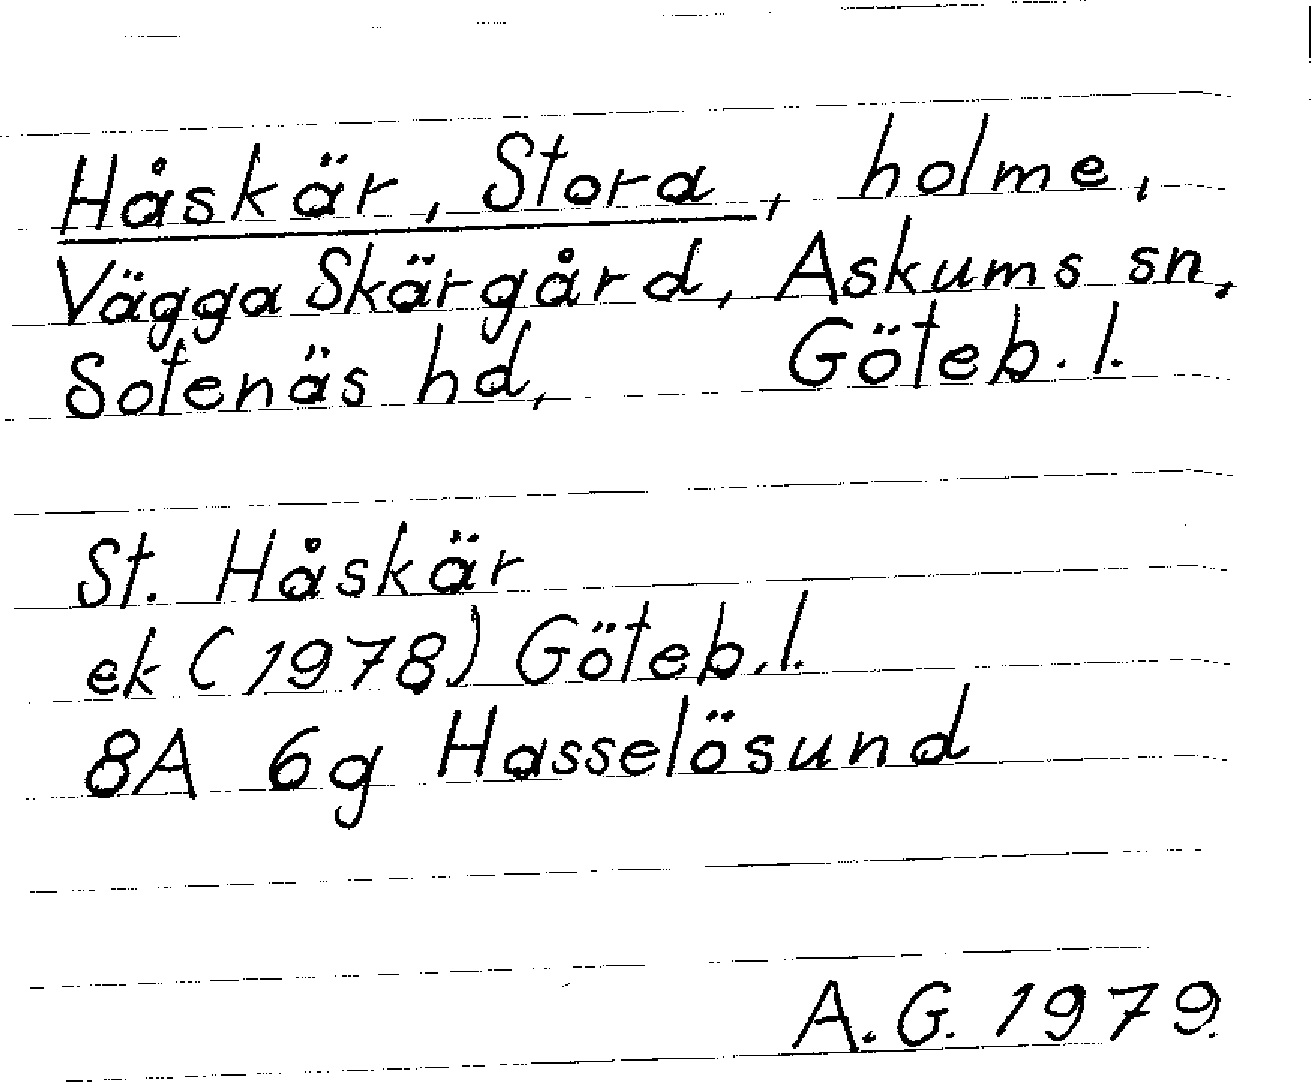 Håskär, Stora, holme,
Vägga Skärgård, Askums sn,
Sotenäs hd, Göteb. l.
St. Håskär
ek (1978) Göteb. l.
8A 6g Hasselösund
A. G. 1979.